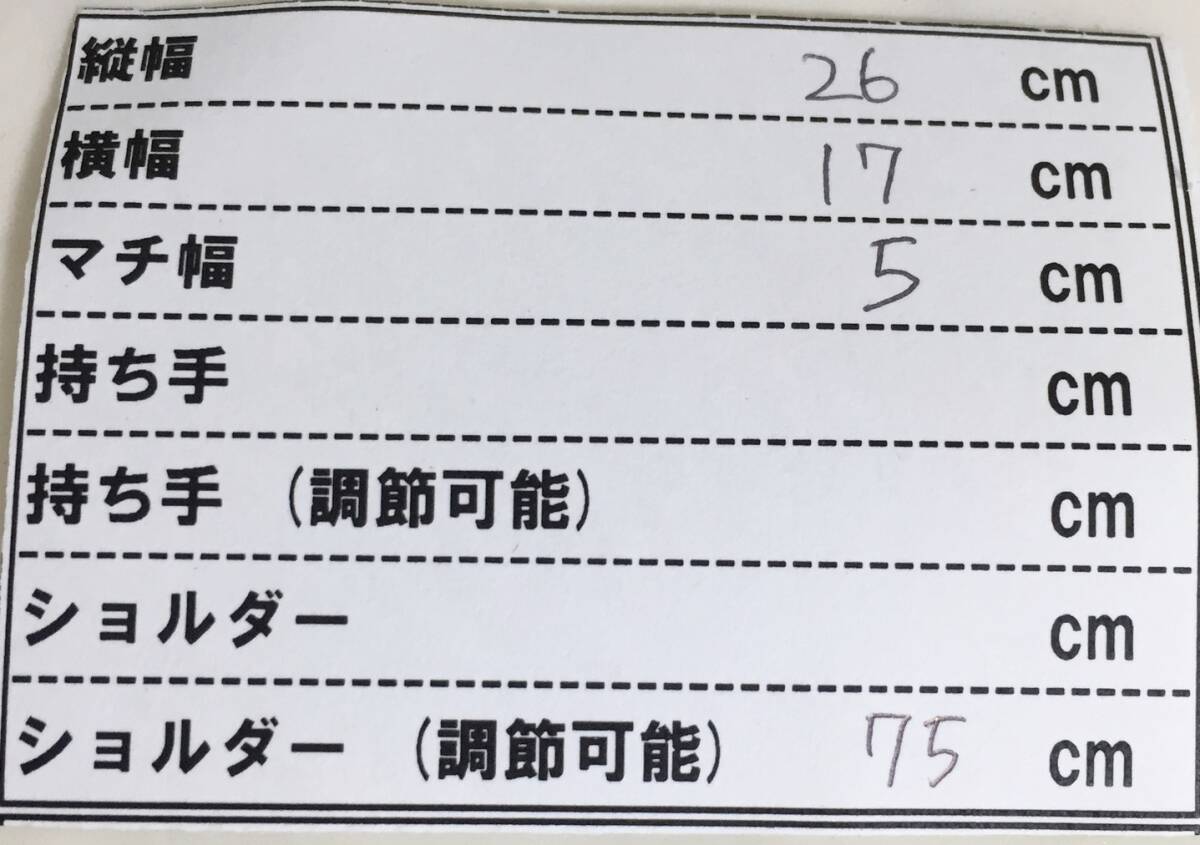 縦幅 26 cm
横幅 17 cm
マチ幅 5 cm
持ち手 cm
持ち手 (調節可能) cm
ショルダー cm
ショルダー (調節可能) 75 cm